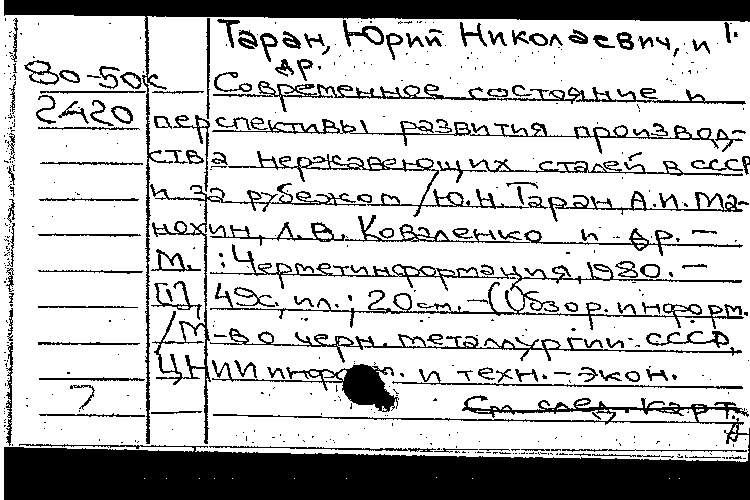 Таран, Юрий Николаевич, и
др.
80-50к
Современное состояние и
2420
перспективы развития производ-
ства нержавеющих сталей в СССР
и за рубежом / Ю.Н. Таран, А.И. Ма-
нохин, Л.В. Коваленко и др. –
М. : Черметинформация, 1980. –
[1], 49с., ил.; 20 см. – (Обзор. информ.
/ М-во черн. металлургии СССР,
ЦНИИ информ. и техн.-экон.
См след. карт.